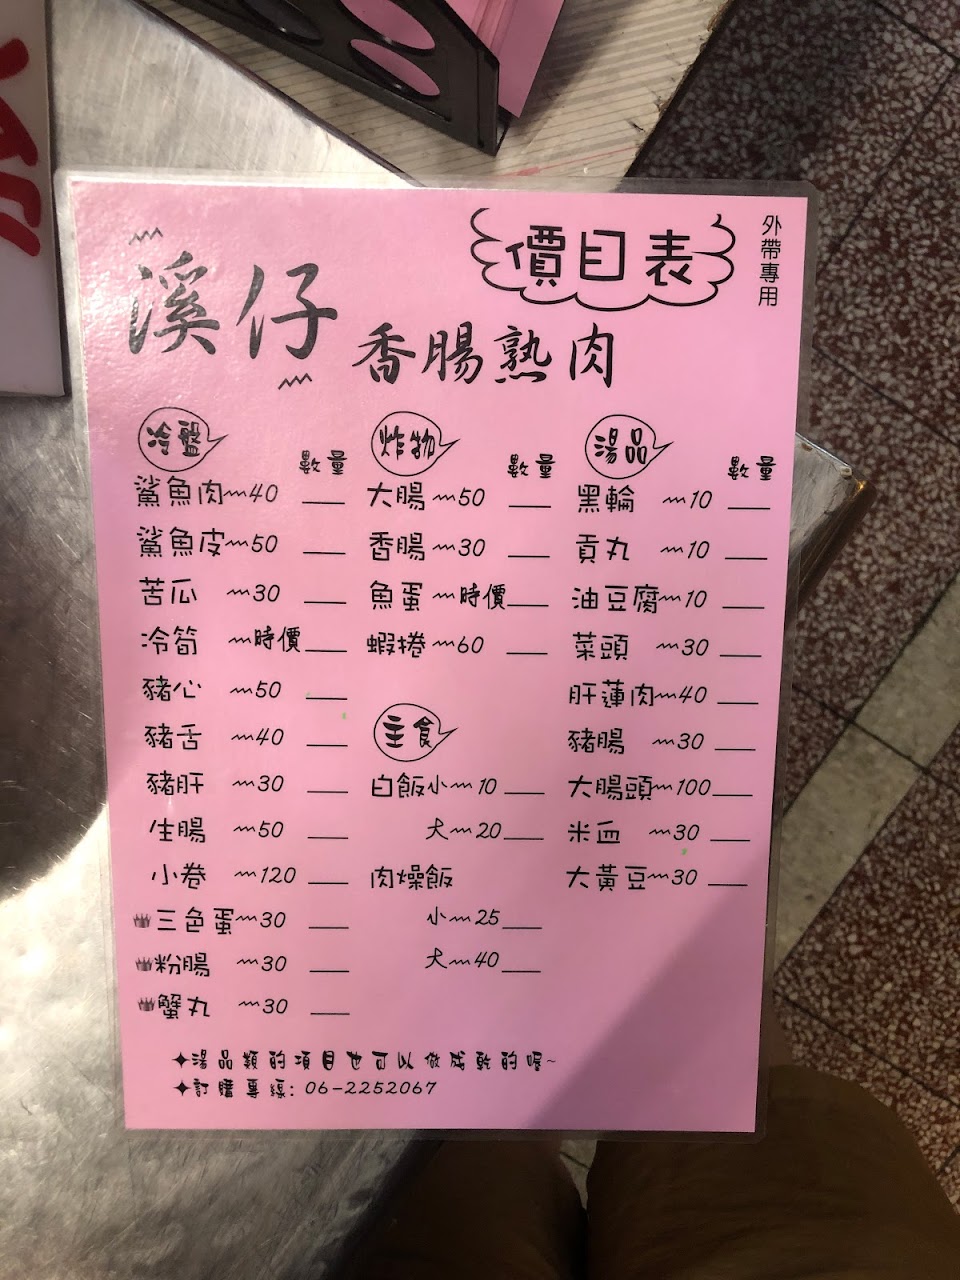 價目表
外帶專用
溪仔
香腸熟肉
冷盤
數量
鯊魚肉~40
鯊魚皮~50
苦瓜 ~30
冷筍 ~時價
豬心 ~50
豬舌 ~40
豬肝 ~30
生腸 ~50
小卷 ~120
三色蛋~30
粉腸 ~30
蟹丸 ~30
炸物
數量
大腸~50
香腸~30
魚蛋~時價
蝦捲~60
主食
白飯小~10
大~20
肉燥飯
小~25
大~40
湯品
數量
黑輪 ~10
貢丸 ~10
油豆腐~10
菜頭 ~30
肝蓮肉~40
豬腸 ~30
大腸頭~100
米血 ~30
大黃豆~30
✦湯品類的項目也可以做成乾的喔~
✦訂購專線: 06-2252067